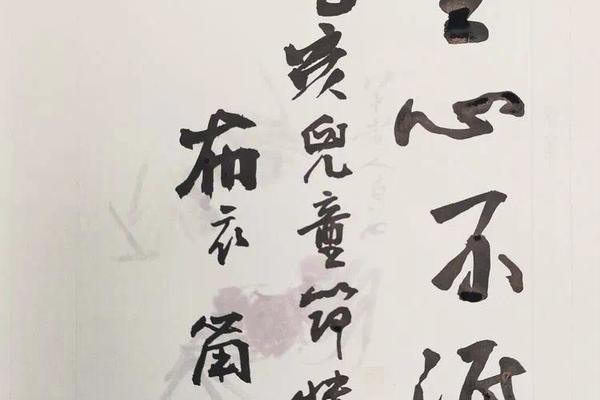 心不泯
己亥兒童節
布衣